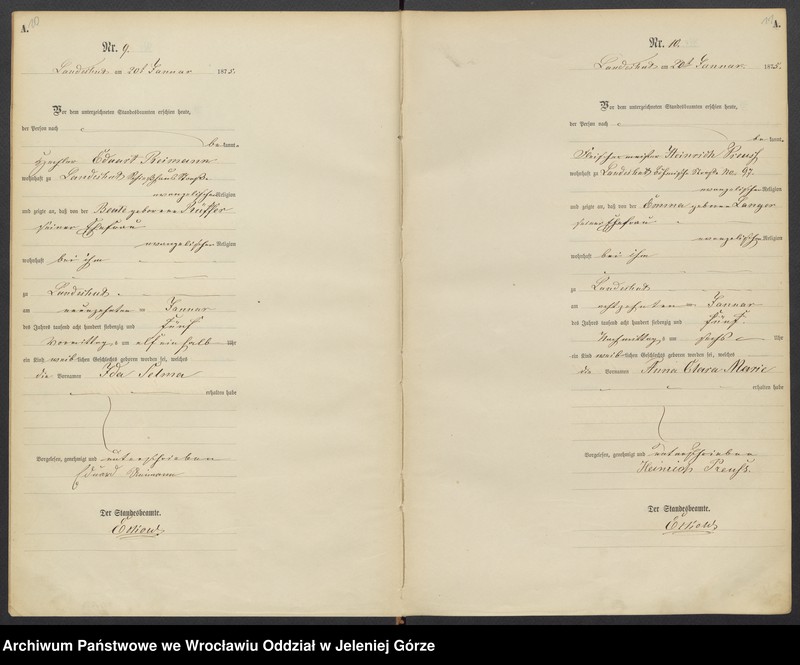 A.
Nr. 9.
Landeshut am 20t Januar 1875.
Vor dem unterzeichneten Standesbeamten erschien heute,
der Person nach
bekannt,
Eduart Reimann
wohnhaft zu Landeshut Schießhaus Straße
evangelischer Religion
und zeigte an, daß von der Beate geborene Püffer
seiner Ehefrau
evangelischer Religion
wohnhaft bei ihm
zu Landeshut
am neunzehnten Januar
des Jahres tausend acht hundert siebenzig und fünf
Vormittags um elf ein halb Uhr
ein Kind weiblichen Geschlechts geboren worden sei, welches
die Vornamen Ida Selma
erhalten habe
Vorgelesen, genehmigt und unterschrieben
Eduard Reimann
Der Standesbeamte.
A.
Nr. 10.
Landeshut am 20t Januar 1875.
Vor dem unterzeichneten Standesbeamten erschien heute,
der Person nach
bekannt,
Fleischermeister Heinrich Preuß
wohnhaft zu Landeshut Böhmische Straße No. 97.
evangelischer Religion
und zeigte an, daß von der Emma geborene Langer
seiner Ehefrau
evangelischer Religion
wohnhaft bei ihm
zu Landeshut
am achtzehnten Januar
des Jahres tausend acht hundert siebenzig und fünf
Nachmittags um sechs Uhr
ein Kind weiblichen Geschlechts geboren worden sei, welches
die Vornamen Anna Clara Marie
erhalten habe
Vorgelesen, genehmigt und unterschrieben
Heinrich Preuß.
Der Standesbeamte.
Archiwum Państwowe we Wrocławiu Oddział w Jeleniej Górze